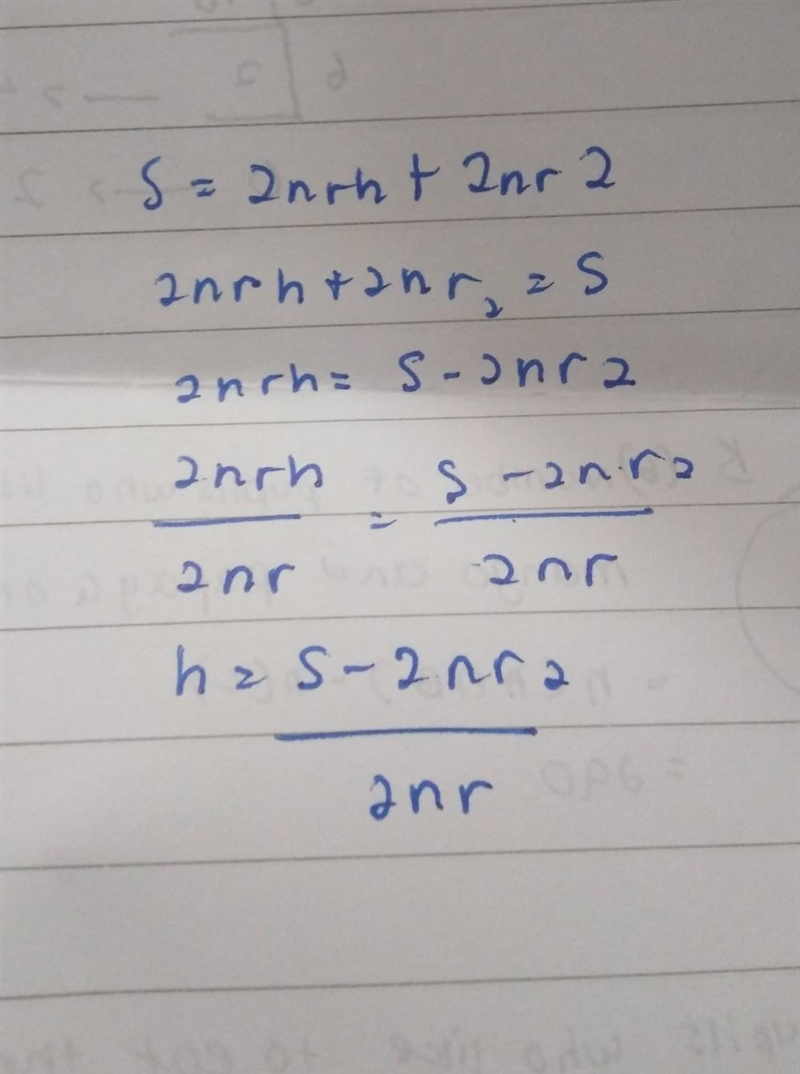 S = 2nrh + 2nr 2
2nrh + 2nr₂ = S
2nrh = S - 2nr2
2nrh = S - 2nr2
2nr 2nr
h = S - 2nr2
2nr